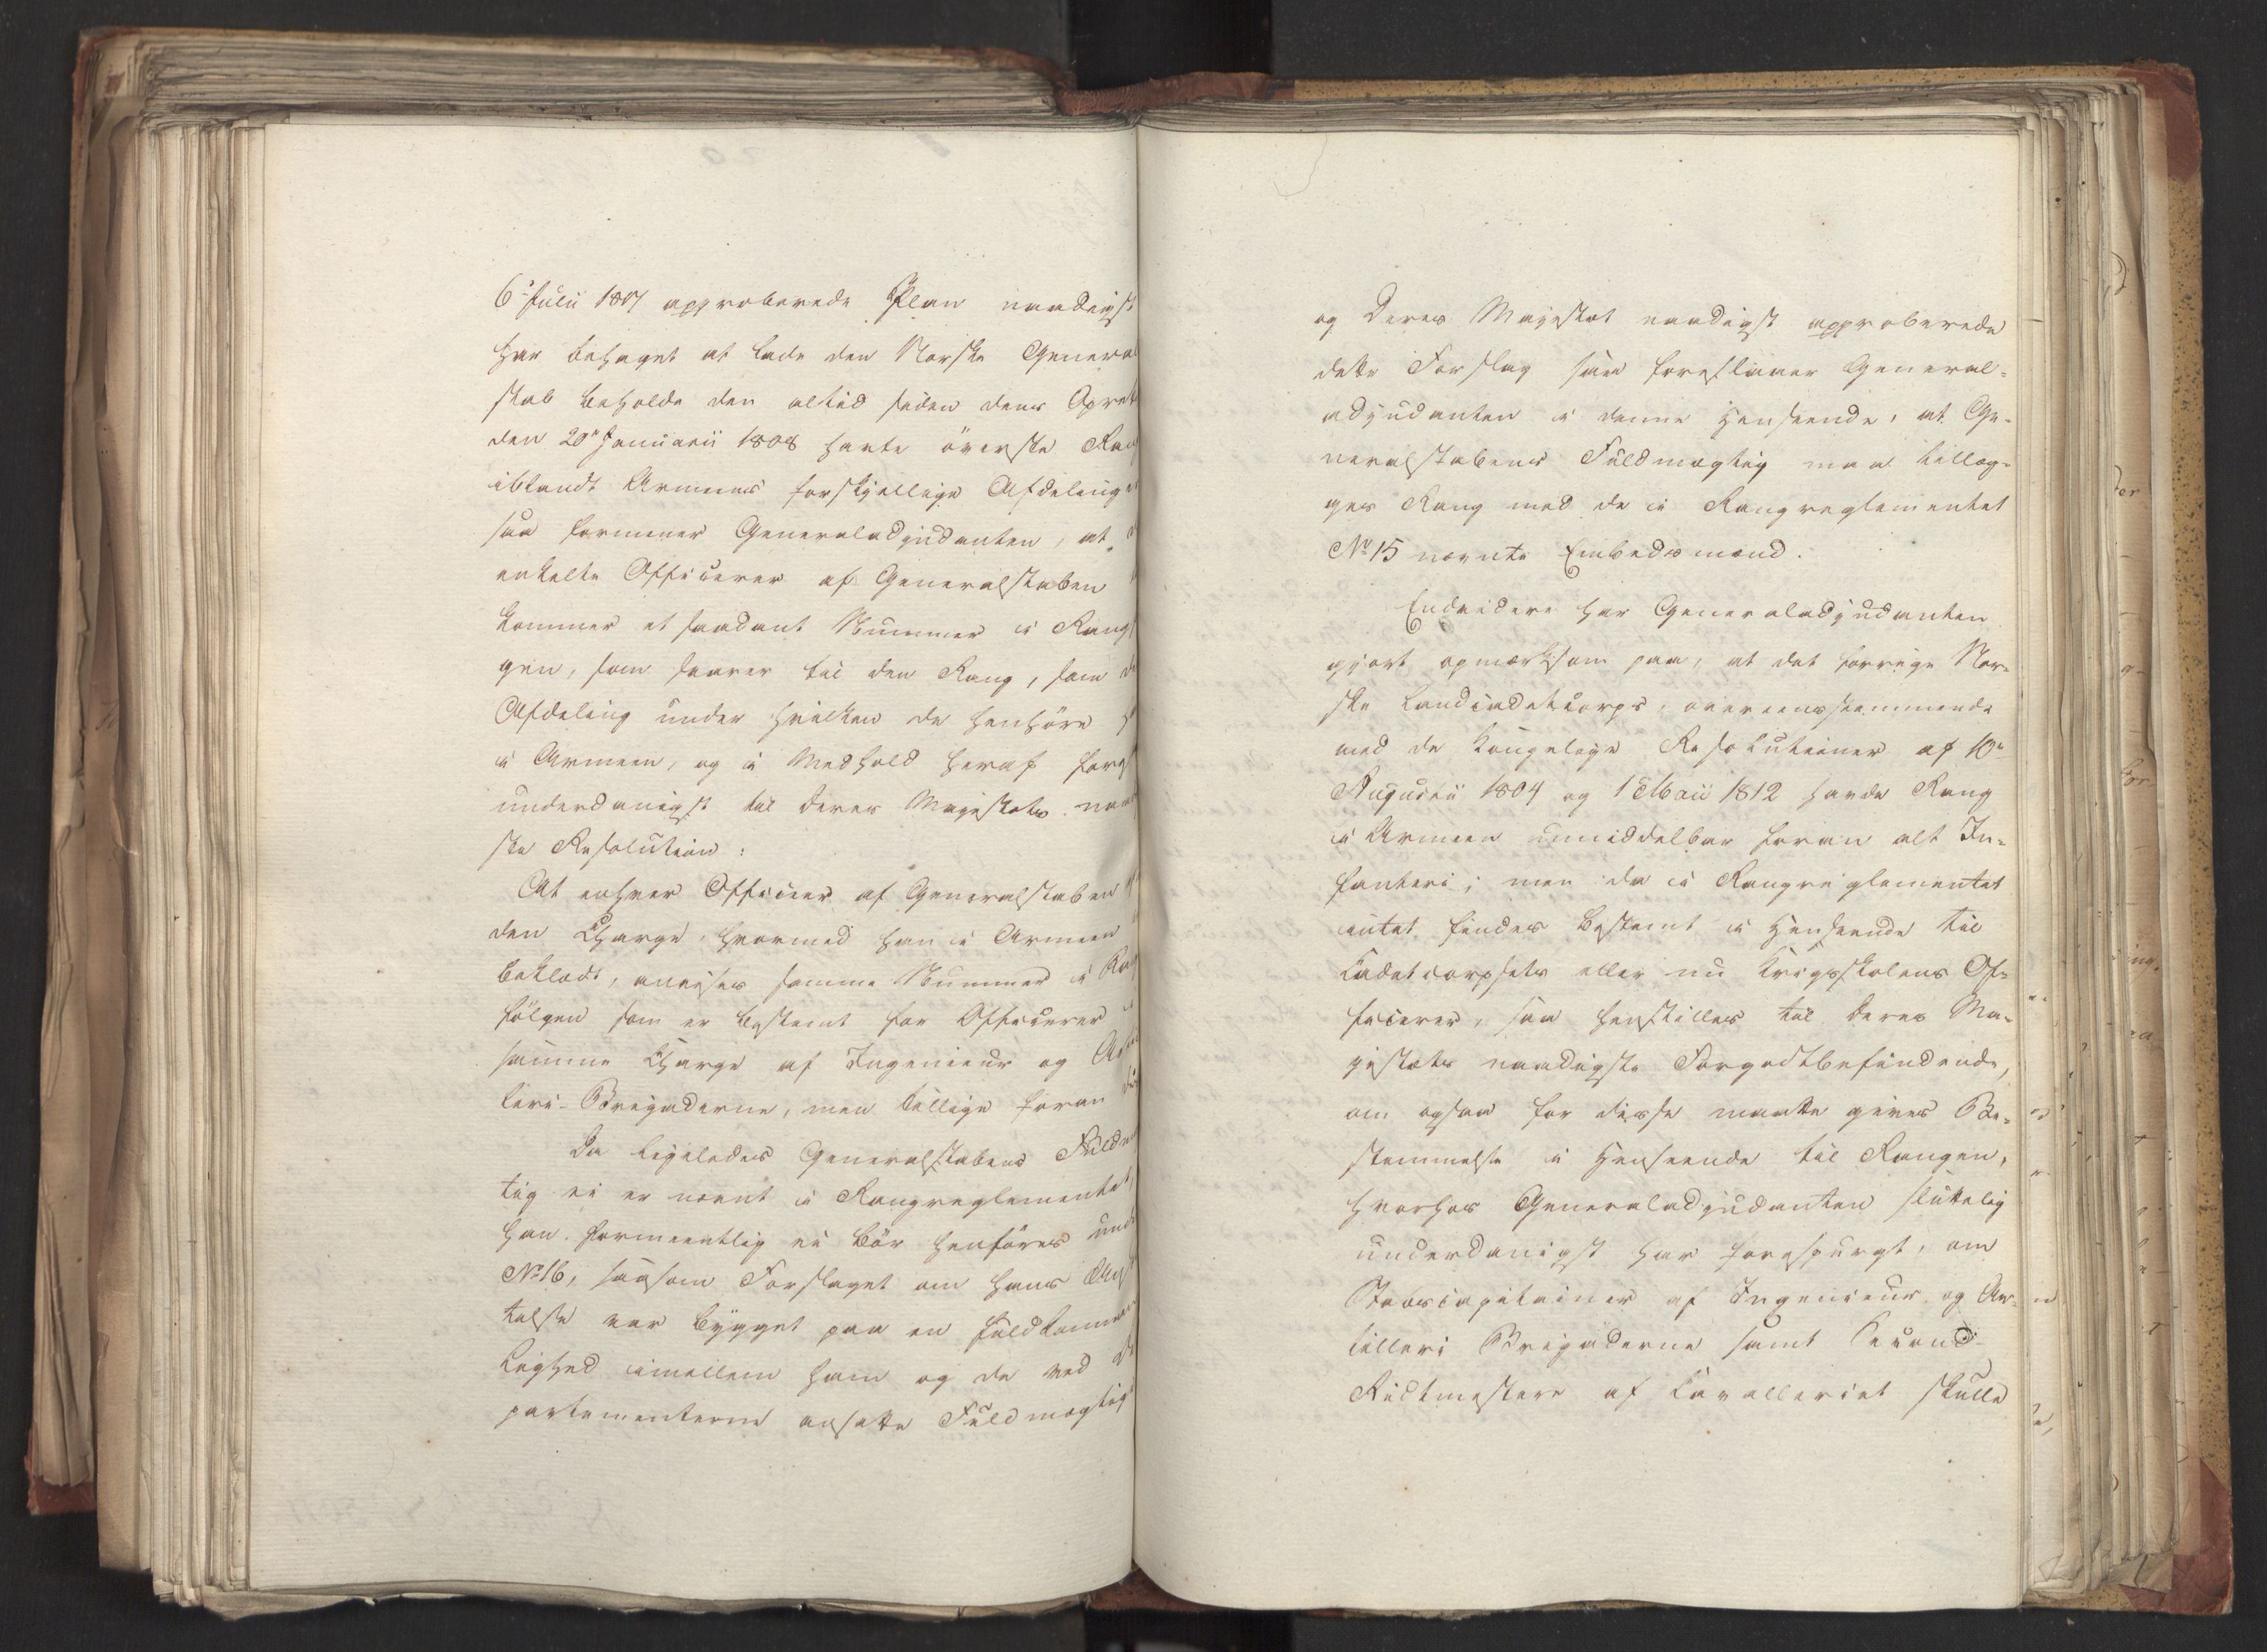 6te Julii 1817 approberede Plan naadigst
har behaget at lade den Norske General
stab beholde den altid siden dens Opret
den 20de Januarii 1808 havte överste Rang
iblandt Armeens forskjellige Afdelinge
saa formener Generaladjudanten, at
enkelte Officerer af Generalstaben
kommer et saadant Nummer i Rang
gen, som svarer til den Rang, som
Afdeling under hvilken de henhöre
i Armeen, og i Medhold heraf
underdanigst til Deres Majestæts naad
ste Resolution:
At enhver Officier af Generalstaben
den Charge, hvormed han i Armeen
beklædt, anvises samme Nummer i Rang
fölgen som er bestemt for Officerer
samme Charge af Ingenieur og Artil
leri-Brigaderne, men tillige foran
Da ligeledes Generalstabens Fuldmæg
tig ei er nævnt i Rangreglementet,
han formeentlig ei bör henföres under
No 16, saasom Forslaget om hans
telse var bygget paa en fuldkommen
Lighed imellem ham og de ved De
partementerne ansatte Fuldmægtige
og Deres Majestæt naadigst approberede
dette Forslag saa foreslaaer General-
adjudanten i denne Henseende, at Ge-
neralstabens Fuldmægtig maa tillæg-
ges Rang med de i Rangreglementet
No 15 nævnte Embedsmænd.
Endvidere har Generaladjudanten
gjort opmærksom paa, at det forrige Nor-
ske Landcadetcorps, overeensstemmende
med de Kongelige Resolutioner af 10de
Augustii 1804 og 1 Maii 1812 havde Rang
i Armeen umiddelbar foran alt In-
fanteri; men da i Rangreglementet
intet findes bestemt i Henseende til
Cadetcorpsets eller nu Krigsskolens Of-
ficerer, saa henstilles til Deres Ma-
jestæts naadigste Forgodtbefindende,
om ogsaa for disse maatte gives Be-
stemmelse i Henseende til Rangen,
hvorhos Generaladjudanten sluttelig
underdanigst har forespurgt, om
Stabscapitainer af Ingenieur og Ar-
tilleri Brigaderne samt Second-
Ridtmestere af Cavalleriet skulle